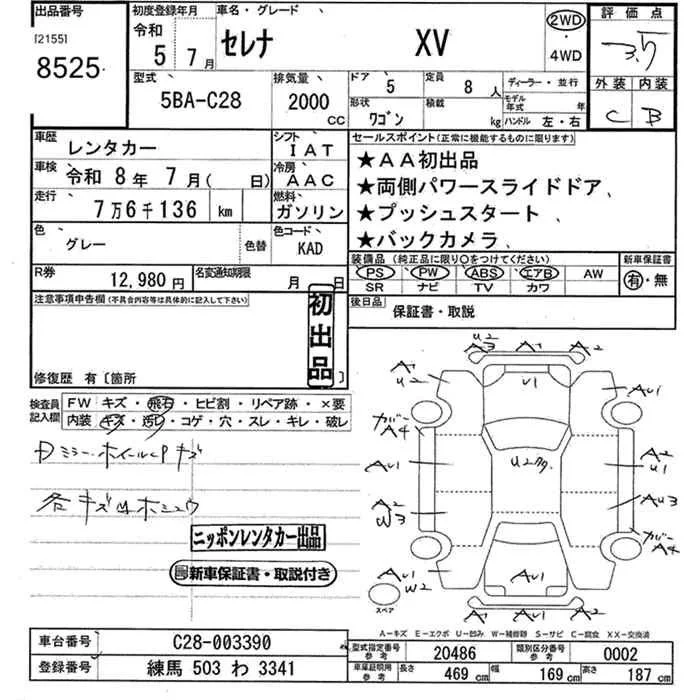 出品番号
[2155]
8525
初度登録年月
令和
5年 7月
車名・グレード
セレナ XV
2WD
4WD
評価点
3.5
外装 内装
C B
型式
5BA-C28
排気量
2000
CC
ドア
5
定員
8人
形状
ワゴン
積載
kg
ディーラー・並行
モデル年式
年
ハンドル 左・右
車歴
レンタカー
シフト
IAT
車検
令和 8年 7月( 日)
冷房
AAC
走行
7万6千136 km
燃料
ガソリン
色
グレー
色替
色コード
KAD
R券
12,980円
名変通知期限
月 日
セールスポイント(正常に機能するものに限ります)
★AA初出品
★両側パワースライドドア、
★プッシュスタート、
★バックカメラ、
装備品(純正品に限り○をつけてください)
PS PW ABS エアB AW
SR ナビ TV カワ
新車保証書
有・無
後日品
保証書・取説
注意事項申告欄(不具合内容等は具体的に記入して下さい)
初出品
修復歴 有〔箇所 〕
検査員記入欄
FW キズ・飛石・ヒビ割・リペア跡・×要
内装 キズ・汚レ・コゲ・穴・スレ・キレ・破レ
Dミラー・ホイールCPキズ
各キズ凹ホシュウ
ニッポンレンタカー出品
新車保証書・取説付き
U2
A3 A1 A1
A1
U2
U1
AU1
カバー
A4
カバー
A2
AU1
A2
U1
A2
W3
AU3
カバー
A4
AU1
W2
AU1
AU1
AU1
スペア
A-キズ E-エクボ U-凹ミ W-補修跡 S-サビ C-腐食 XX-交換済
車台番号
C28-003390
登録番号
練馬 503 わ 3341
型式指定番号
参考
20486
類別区分番号
参考
0002
車庫証明用
参考
長さ 469 cm 幅 169 cm 高さ 187 cm